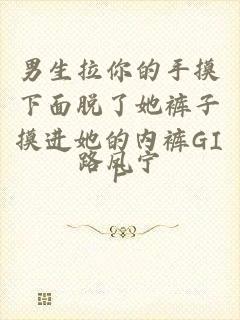 男生拉你的手摸
下面脱了她裤子
摸进她的内裤GI
F
路 宁